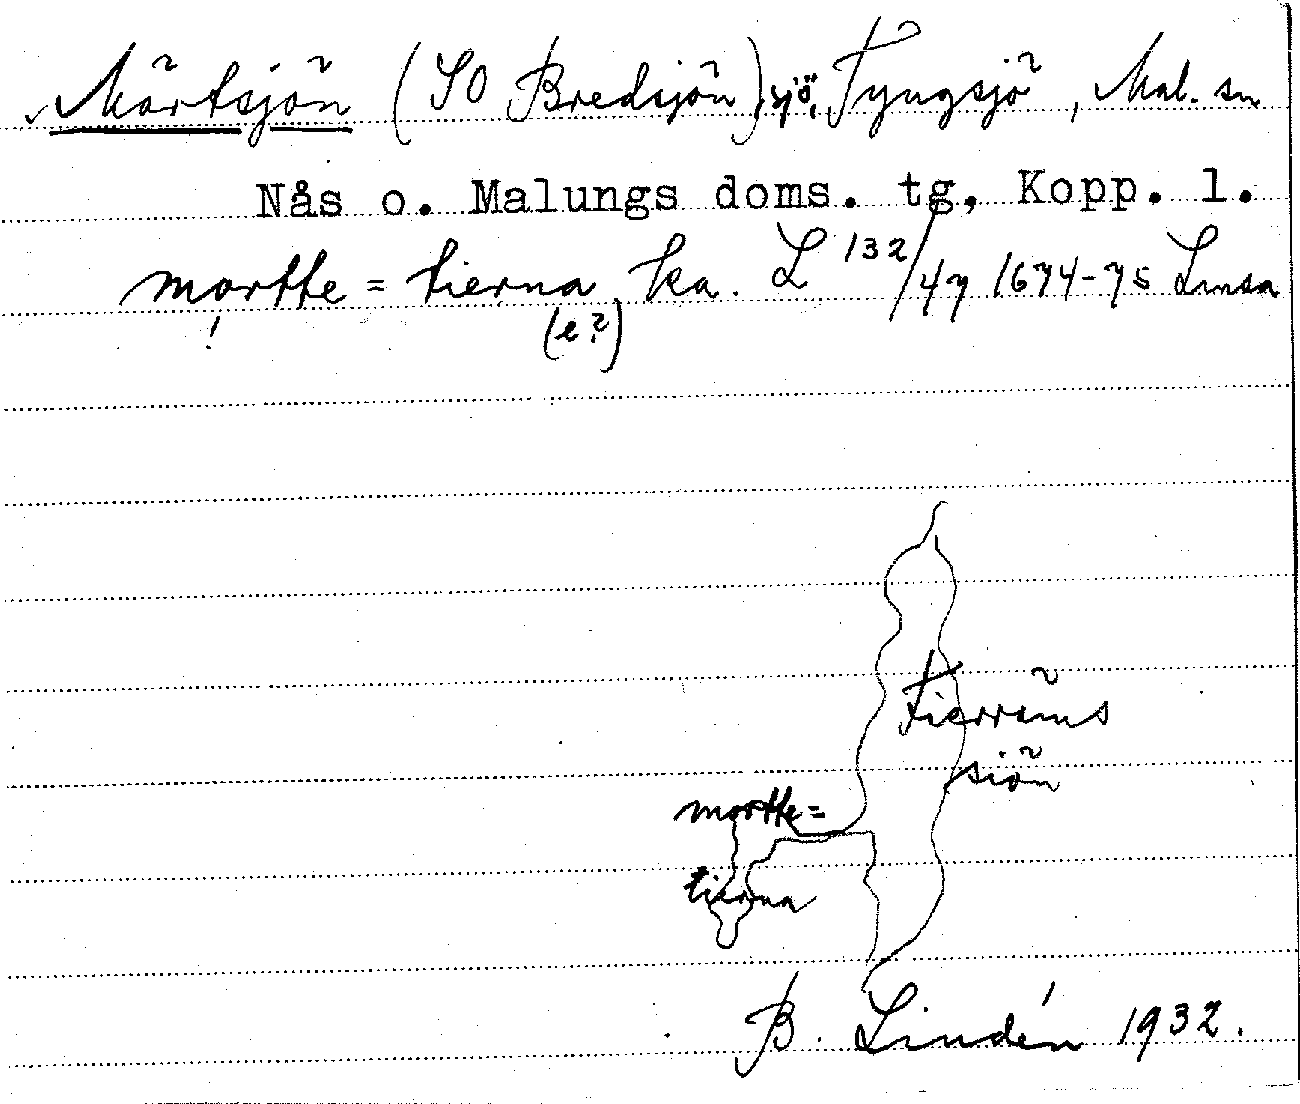 Mörtsjön (SO Bredsjön), sjö, Tyngsjö, Mal. sn
Nås o. Malungs doms. tg, Kopp. l.
mortte = tierna ka. L 132/47 1674-75 Lmsa
! (e?)
Tierräms
siön
mortte =
tierna
B. Lindén 1932.